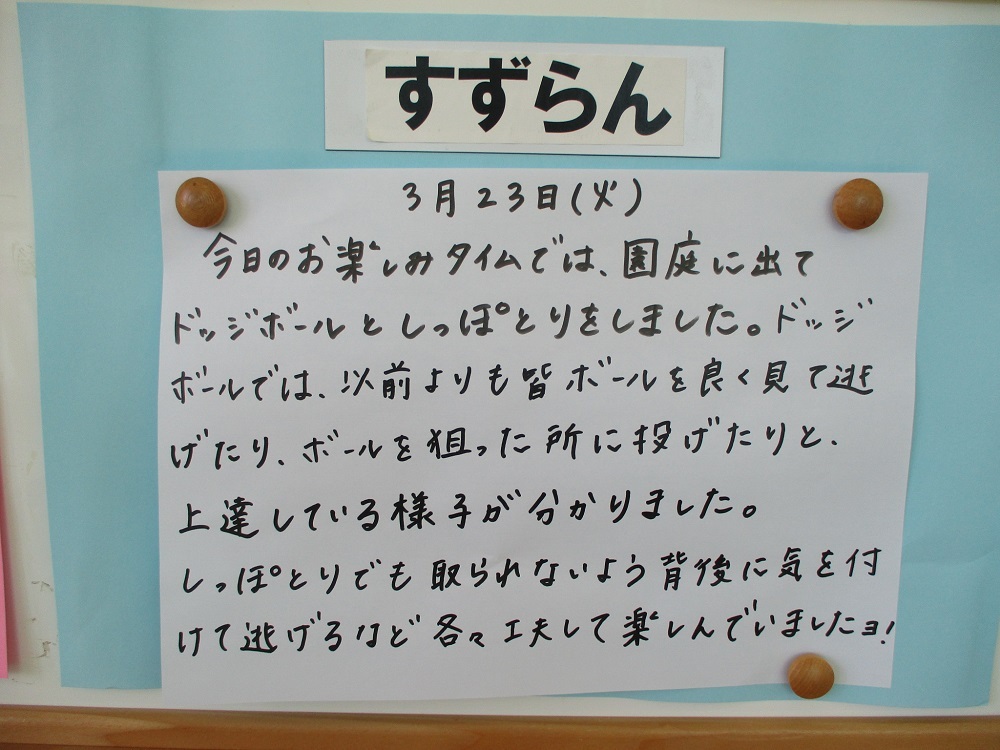 すずらん
3月23日(火)
今日のお楽しみタイムでは、園庭に出て
ドッジボールとしっぽとりをしました。ドッジ
ボールでは、以前よりも皆ボールを良く見て逃
げたり、ボールを狙った所に投げたりと、
上達している様子が分かりました。
しっぽとりでも取られないよう背後に気を付
けて逃げるなど各々工夫して楽しんでいましたヨ!